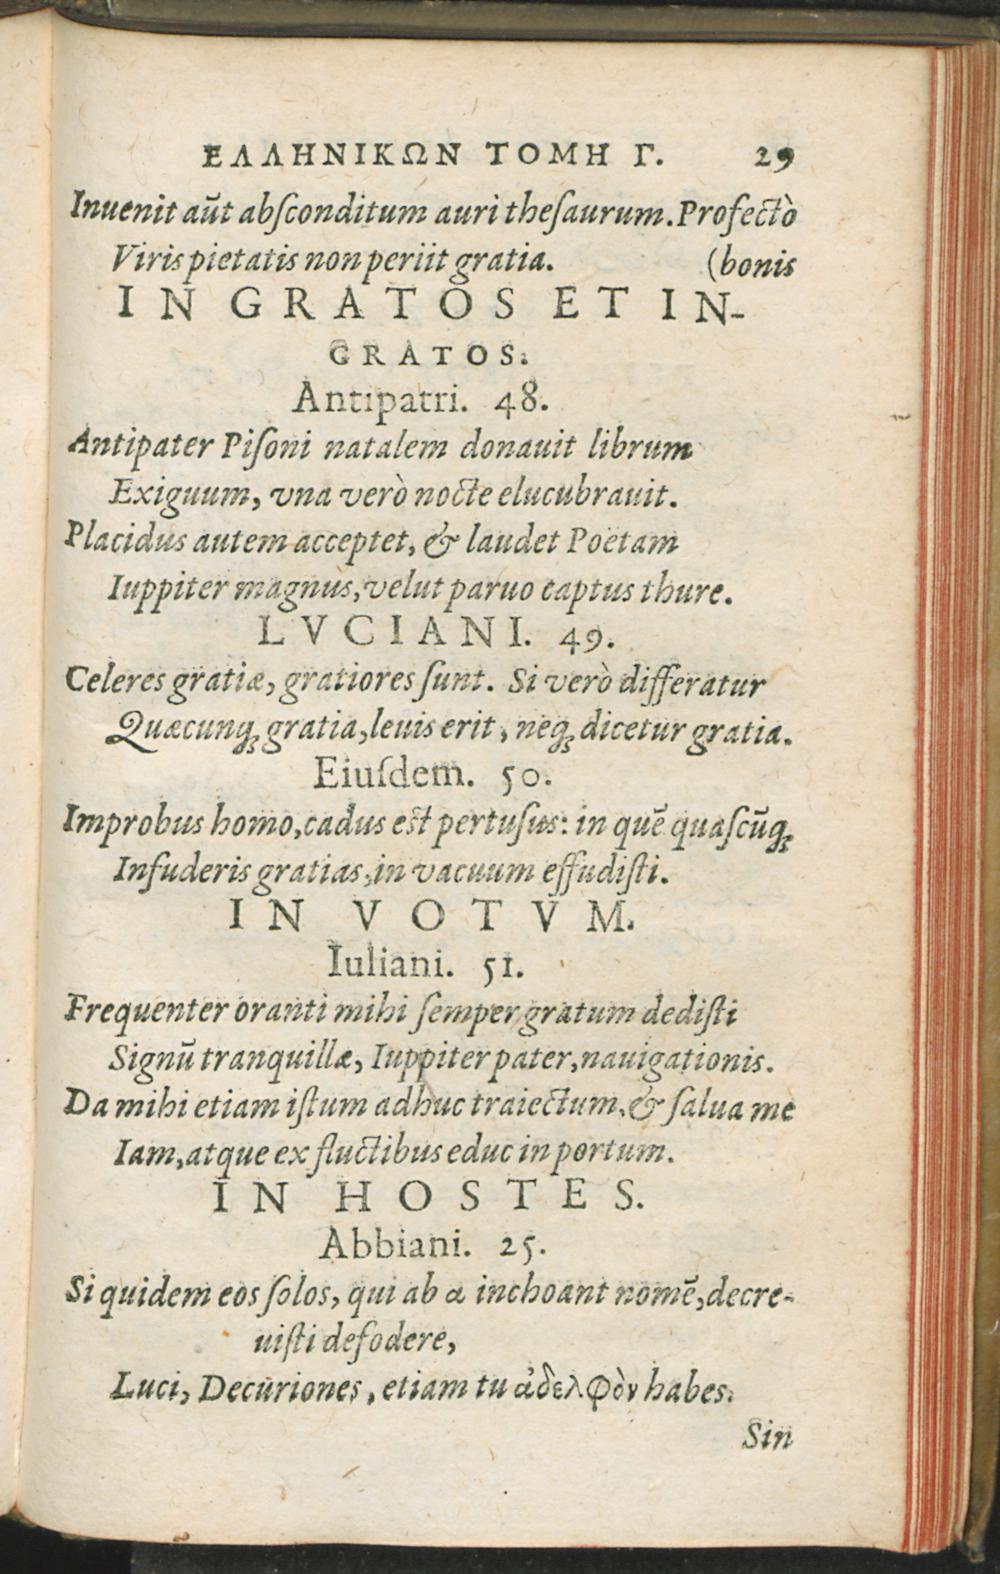 ΕΛΛΗΝΙΚΩΝ ΤΟΜΗ Γ. 29
Inuenit aūt abſconditum auri theſaurum. Profectò
Viris pietatis non periit gratia. (bonis
IN GRATOS ET IN-
GRATOS.
Antipatri. 48.
Antipater Piſoni natalem donauit librum
Exiguum, vna verò nocte elucubrauit.
Placidus autem acceptet, & laudet Poëtam
Iuppiter magnus, velut paruo captus thure.
LVCIANI. 49.
Celeres gratiæ, gratiores ſunt. Si verò differatur
Quæcunq; gratia, leuis erit, neq; dicetur gratia.
Eiuſdem. 50.
Improbus homo, cadus est pertuſus: in quē quaſcūq;
Infuderis gratias, in vacuum effudiſti.
IN VOTVM.
Iuliani. 51.
Frequenter oranti mihi ſemper gratum dediſti
Signū tranquillæ, Iuppiter pater, nauigationis.
Da mihi etiam iſtum adhuc traiectum, & ſalua me
Iam, atque ex fluctibus educ in portum.
IN HOSTES.
Abbiani. 25.
Si quidem eos ſolos, qui ab α inchoant nomē, decre-
uiſti defodere,
Luci, Decuriones, etiam tu ἀδελφὸν habes.
Sin